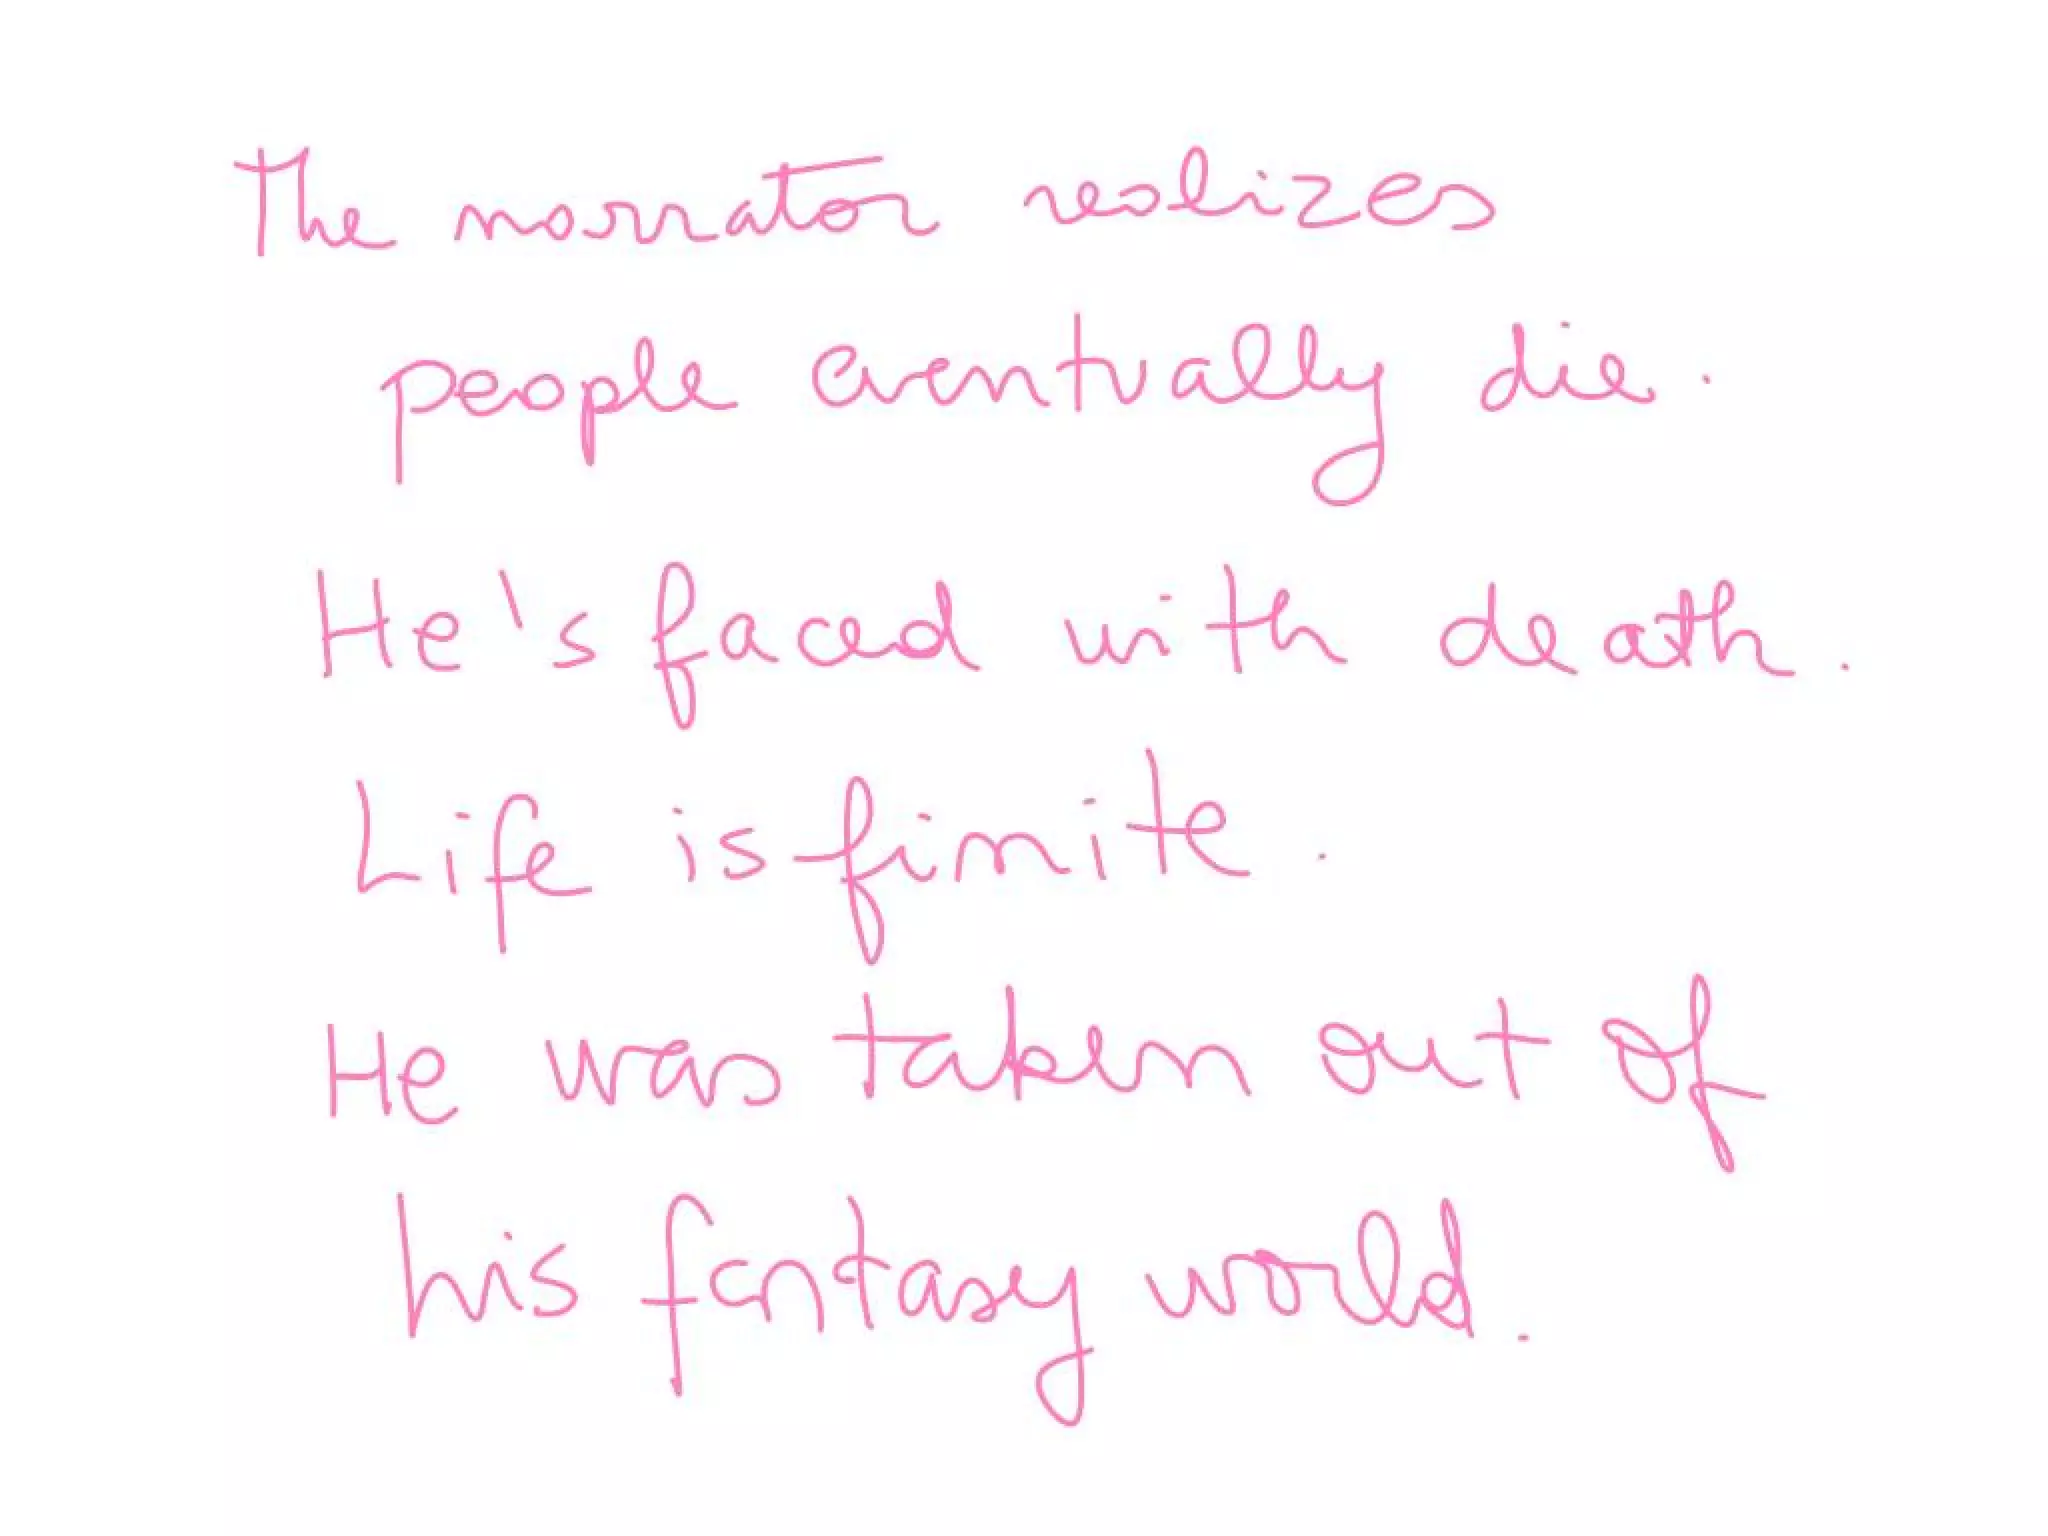 The narrator realizes
people eventually die.
He's faced with death.
Life is finite.
He was taken out of
his fantasy world.